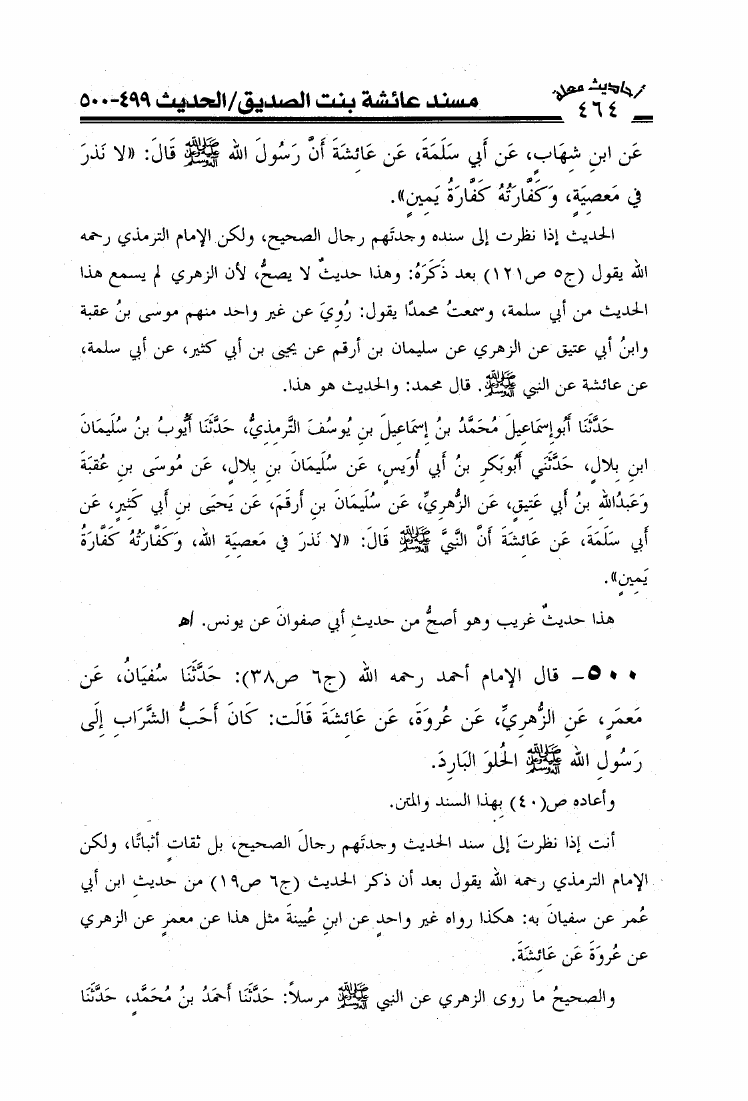 أحاديث معلة
٤٦٤
مسند عائشة بنت الصديق/الحديث ٤٩٩-٥٠٠
عَن ابنِ شِهَابٍ، عَن أَبِي سَلَمَةَ، عَن عَائشَةَ أَنَّ رَسُولَ الله ﷺ قَالَ: «لا نَذرَ
فِي مَعصِيَةٍ، وَكَفَّارَتُهُ كَفَّارَةُ يَمِينٍ».
الحديث إذا نظرت إلى سنده وجدتَهم رجال الصحيح، ولكن الإمام الترمذي رحمه
الله يقول (ج٥ ص١٢١) بعد ذَكَرَهُ: وهذا حديثٌ لا يصحُّ، لأن الزهري لم يسمع هذا
الحديث من أبي سلمة، وسمعتُ محمدًا يقول: رُويَ عن غير واحد منهم موسى بنُ عقبة
وابنُ أبي عتيق عن الزهري عن سليمان بن أرقم عن يحيى بن أبي كثير، عن أبي سلمة،
عن عائشة عن النبي ﷺ. قال محمد: والحديث هو هذا.
حَدَّثَنَا أَبوإسمَاعيلَ مُحَمَّدُ بنُ إسمَاعيلَ بنِ يُوسُفَ التَّرمذيُّ، حَدَّثَنَا أَيُّوبُ بنُ سُلَيمَانَ
ابنِ بِلالٍ، حَدَّثَني أَبُوبَكرِ بنُ أَبي أُوَيسٍ، عَن سُلَيمَانَ بنِ بِلالٍ، عَن مُوسَى بنِ عُقبَةَ
وَعَبدُالله بنُ أَبي عَتيقٍ، عَن الزُّهريِّ، عَن سُلَيمَانَ بنِ أَرقَمَ، عَن يَحيَى بنِ أَبي كَثيرٍ، عَن
أَبي سَلَمَةَ، عَن عَائشَةَ أَنَّ النَّبيَّ ﷺ قَالَ: «لا نَذرَ في مَعصيَةِ الله، وَكَفَّارَتُهُ كَفَّارَةُ
يَمينٍ».
هذا حديثٌ غريب وهو أصحُّ من حديثِ أبي صفوانَ عن يونس. اهـ
٥٠٠- قال الإمام أحمد رحمه الله (ج٦ ص٣٨): حَدَّثَنَا سُفيَانُ، عَن
مَعمَرٍ، عَنِ الزُّهرِيِّ، عَن عُروَةَ، عَن عَائشَةَ قَالَت: كَانَ أَحَبُّ الشَّرَابِ إِلَى
رَسُولِ الله ﷺ الحُلوَ البَارِدَ.
وأعاده ص(٤٠) بِهذا السند والمتن.
أنت إذا نظرتَ إلى سند الحديث وجدتَهم رجالَ الصحيح، بل ثقاتٍ أثباتًا، ولكن
الإمام الترمذي رحمه الله يقول بعد أن ذكر الحديث (ج٦ ص١٩) من حديثِ ابن أبي
عُمر عن سفيانَ به: هكذا رواه غير واحدٍ عن ابنِ عُيينةَ مثل هذا عن معمرٍ عن الزهري
عن عُروَةَ عَن عَائشَةَ.
والصحيحُ ما روى الزهري عن النبي ﷺ مرسلاً: حَدَّثَنَا أَحمَدُ بنُ مُحَمَّدٍ، حَدَّثَنَا